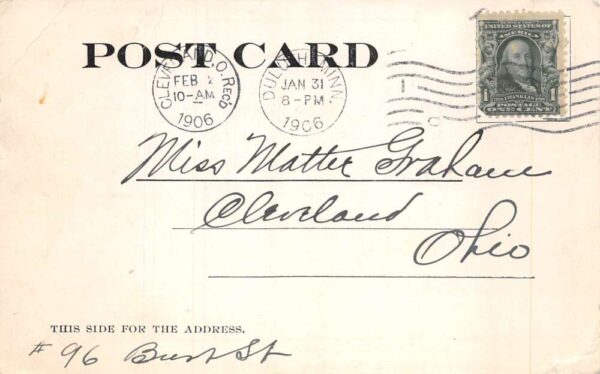 POST CARD
CLEVELAND, O. REC'D
FEB 2
10-AM
1906
DULUTH, MINN.
JAN 31
8-PM
1906
UNITED STATES OF
AMERICA
1 FRANKLIN 1
POSTAGE
ONE CENT
Miss Matter Graham
Cleveland
Ohio
THIS SIDE FOR THE ADDRESS.
# 96 Burt St